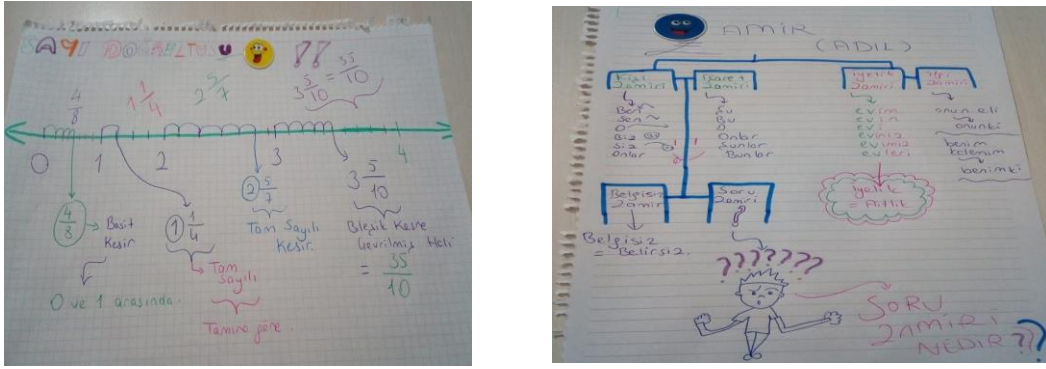 SAYI DOĞRULTUSU !!
4/8
1 1/4
2 5/7
3 5/10 = 35/10
0 1 2 3 4
4/8 → Basit Kesir
0 ve 1 arasında.
1 1/4
Tam Sayılı
Tamına göre.
2 5/7
Tam Sayılı Kesir.
3 5/10
Bileşik Kesre Çevrilmiş Hali
= 35/10
ZAMİR
(ADIL)
Kişi Zamiri
Ben
Sen
O
Biz
Siz
Onlar
İşaret Zamiri
Şu
Bu
O
Onlar
Şunlar
Bunlar
İyelik Zamiri
evim
evin
evi
evimiz
evleri
İyelik = Aitlik
İlgi Zamiri
onun eli
onunki
benim kalemim
benimki
Belgisiz Zamir
Belgisiz = Belirsiz.
Soru Zamiri
?
???????
SORU
ZAMİRİ
NEDİR ??